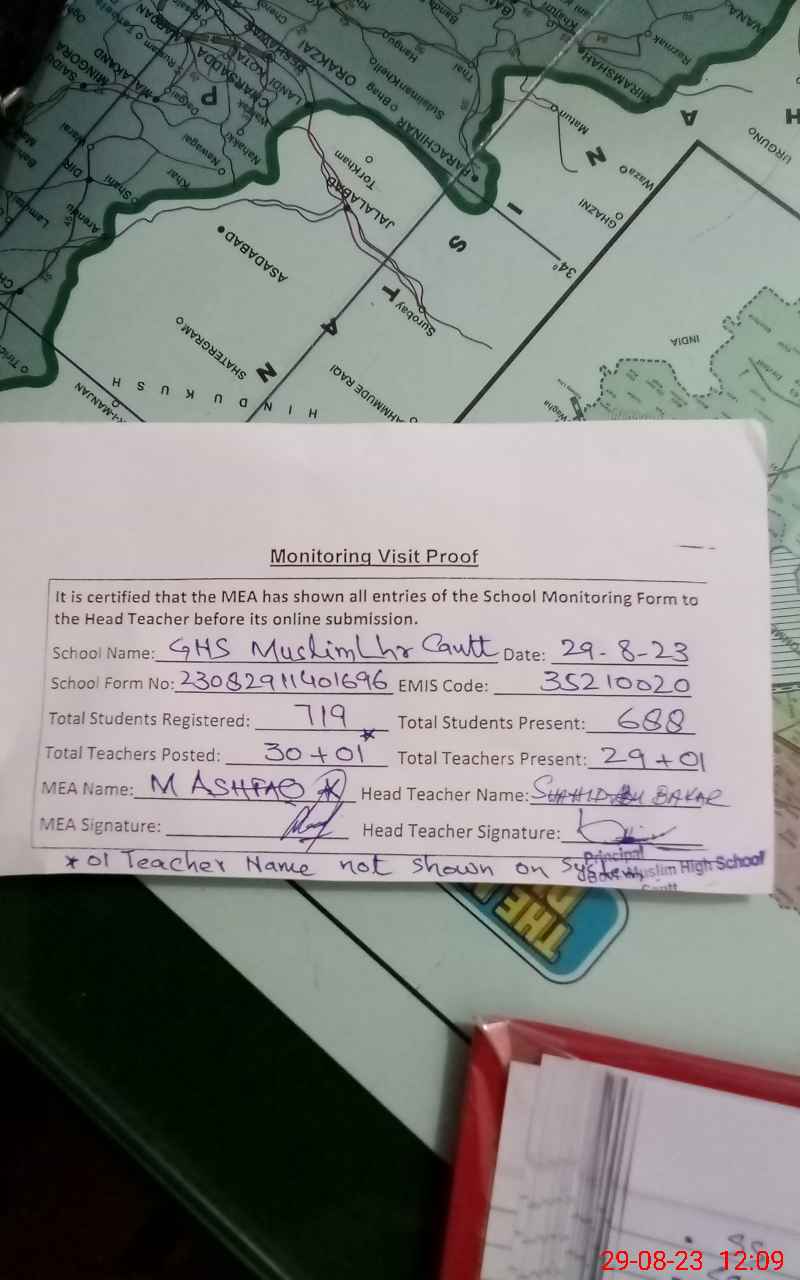 OKARAI
ORAKZAI
MINGORA
MALAKAND
CHARSADDA
LANDI KOTAL
Hangu
Thal
MIRAMSHAH
Razmak
WANA
Bhag
PARACHINAR
Matun
URGUNO
Waza
GHAZNI
Torkham
JALALABAD
Nawagai
Khar
DIR
ASADABAD
SHATERGRAM
Surobay
34°
INDIA
Wagha
HINDU KUSH
Monitoring Visit Proof
It is certified that the MEA has shown all entries of the School Monitoring Form to
the Head Teacher before its online submission.
School Name: GHS Muslim Lhr Cantt Date: 29-8-23
School Form No: 23082911401696 EMIS Code: 35210020
Total Students Registered: 719 Total Students Present: 688
Total Teachers Posted: 30+01* Total Teachers Present: 29+01
MEA Name: M ASHFAQ Head Teacher Name: SHAHID ABU BAKAR
MEA Signature: Head Teacher Signature:
* 01 Teacher Name not shown on System
Principal
Govt. Muslim High School
Cantt
THE
29-08-23 12:09